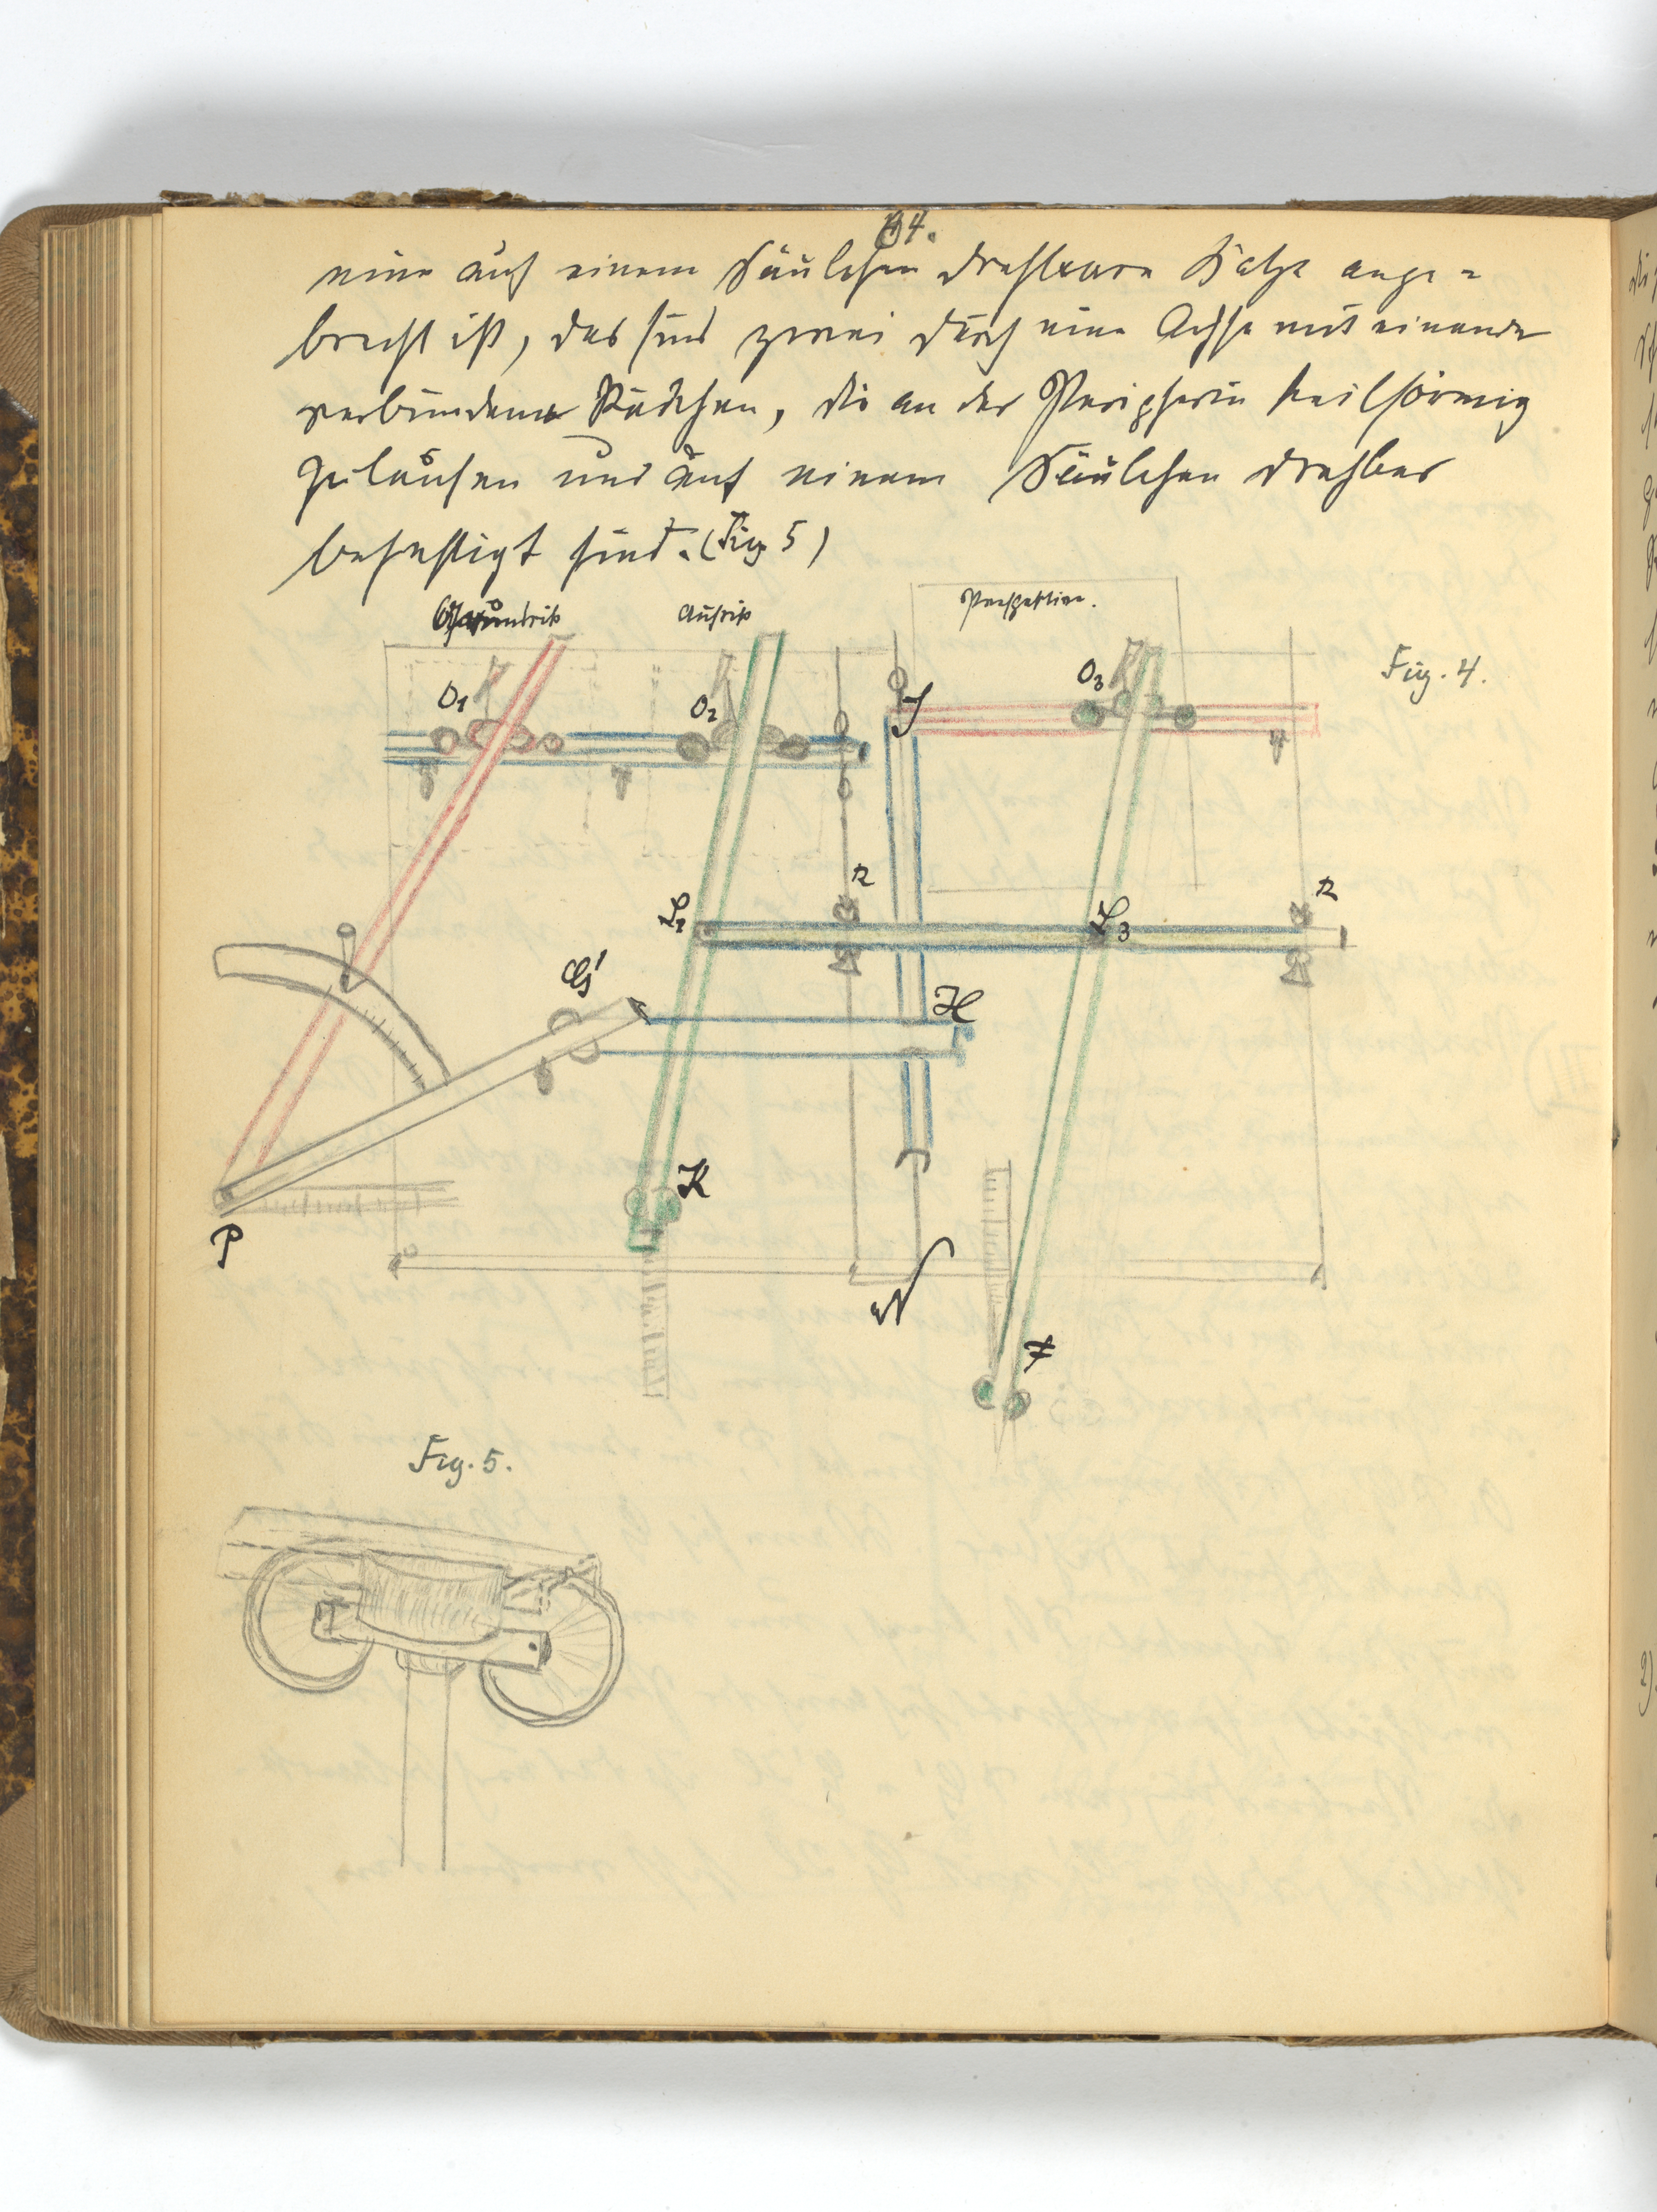 64.
eine auf einem Säulchen drehbare Katze ange=
bracht ist, das sind zwei durch eine Achse mit einander
verbundene Rädchen, die an der Peripherie keilförmig
zulaufen und auf einem Säulchen drehbar
befestigt sind. (Fig 5)
Grundriß Aufriß Perspektive.
Fig. 4.
O1 O2 J O3
R R
L2 L3
G' H
K
P
N
F
Fig. 5.